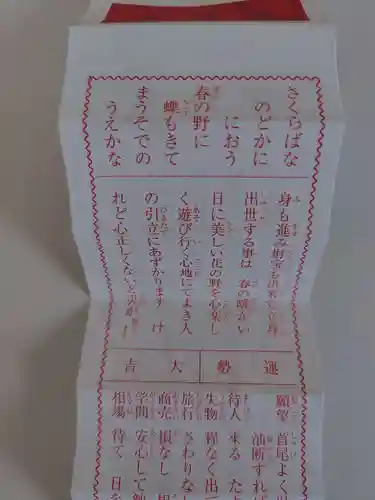 さくらばな
のどかに
におう
春の野に
蝶もきて
まうそでの
うえかな
身も進み財宝も出来て立身
出世する事は 春の暖かい
日に美しい花の野を心楽し
く遊び行く心地にてよき人
の引立にあずかります け
れど心正しくないと
運勢
大吉
願望 首尾よく
油断すれ
待人 来る た
失物 程なく出
旅行 さわりな
商売 損なし
学問 安心して勉
相場 待て 日を